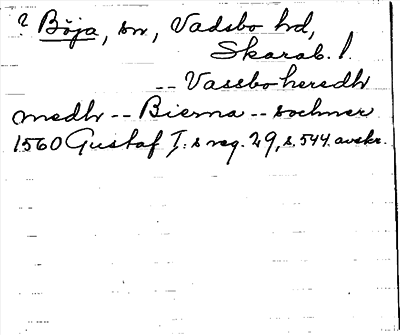 ? Böja, sn, Vadsbo hd,
Skarab. l.
-- Vassboheredh
medh -- Bierna -- sochner
1560 Gustaf I:s reg. 29, s. 544. avskr.